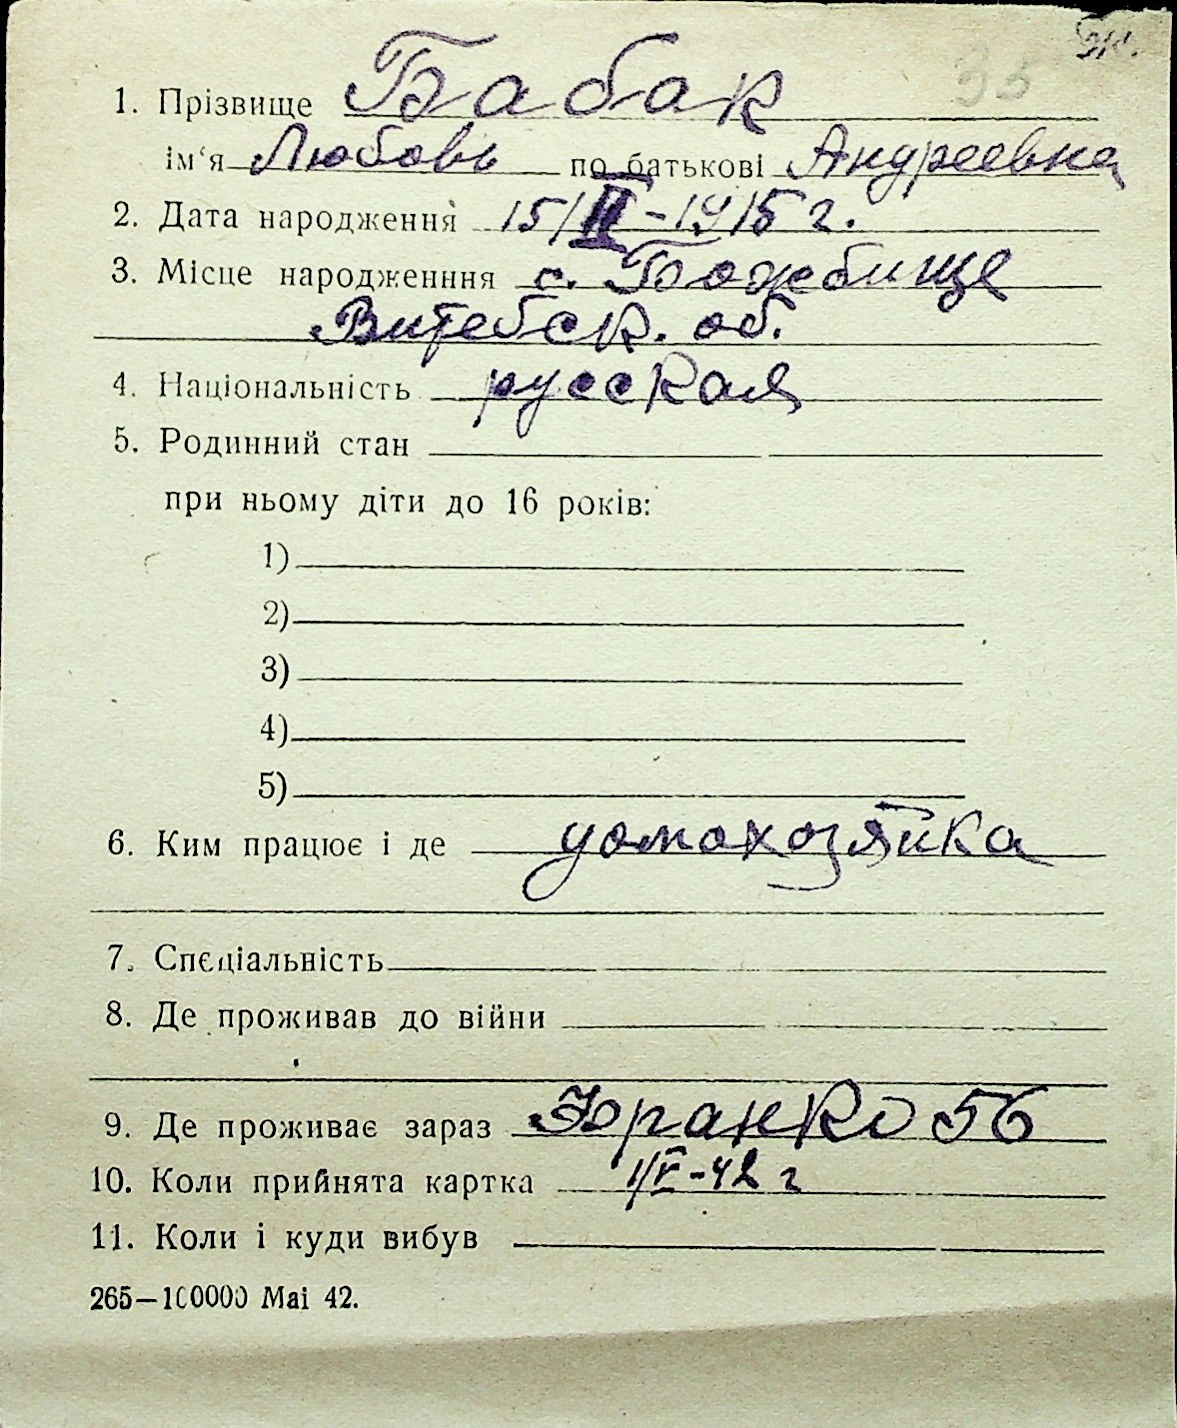 1. Прізвище Бабак
ім‘я Любовь по батькові Андреевна
2. Дата народження 15/II-1915 г.
3. Місце народженння с. Божебище
Витебск. об.
4. Національність русская
5. Родинний стан
при ньому діти до 16 років:
1)
2)
3)
4)
5)
6. Ким працює і де домохозяйка
7. Спеціальність
8. Де проживав до війни
9. Де проживає зараз Франко 56
10. Коли прийнята картка 1/V-42 г
11. Коли і куди вибув
265—100000 Mai 42.